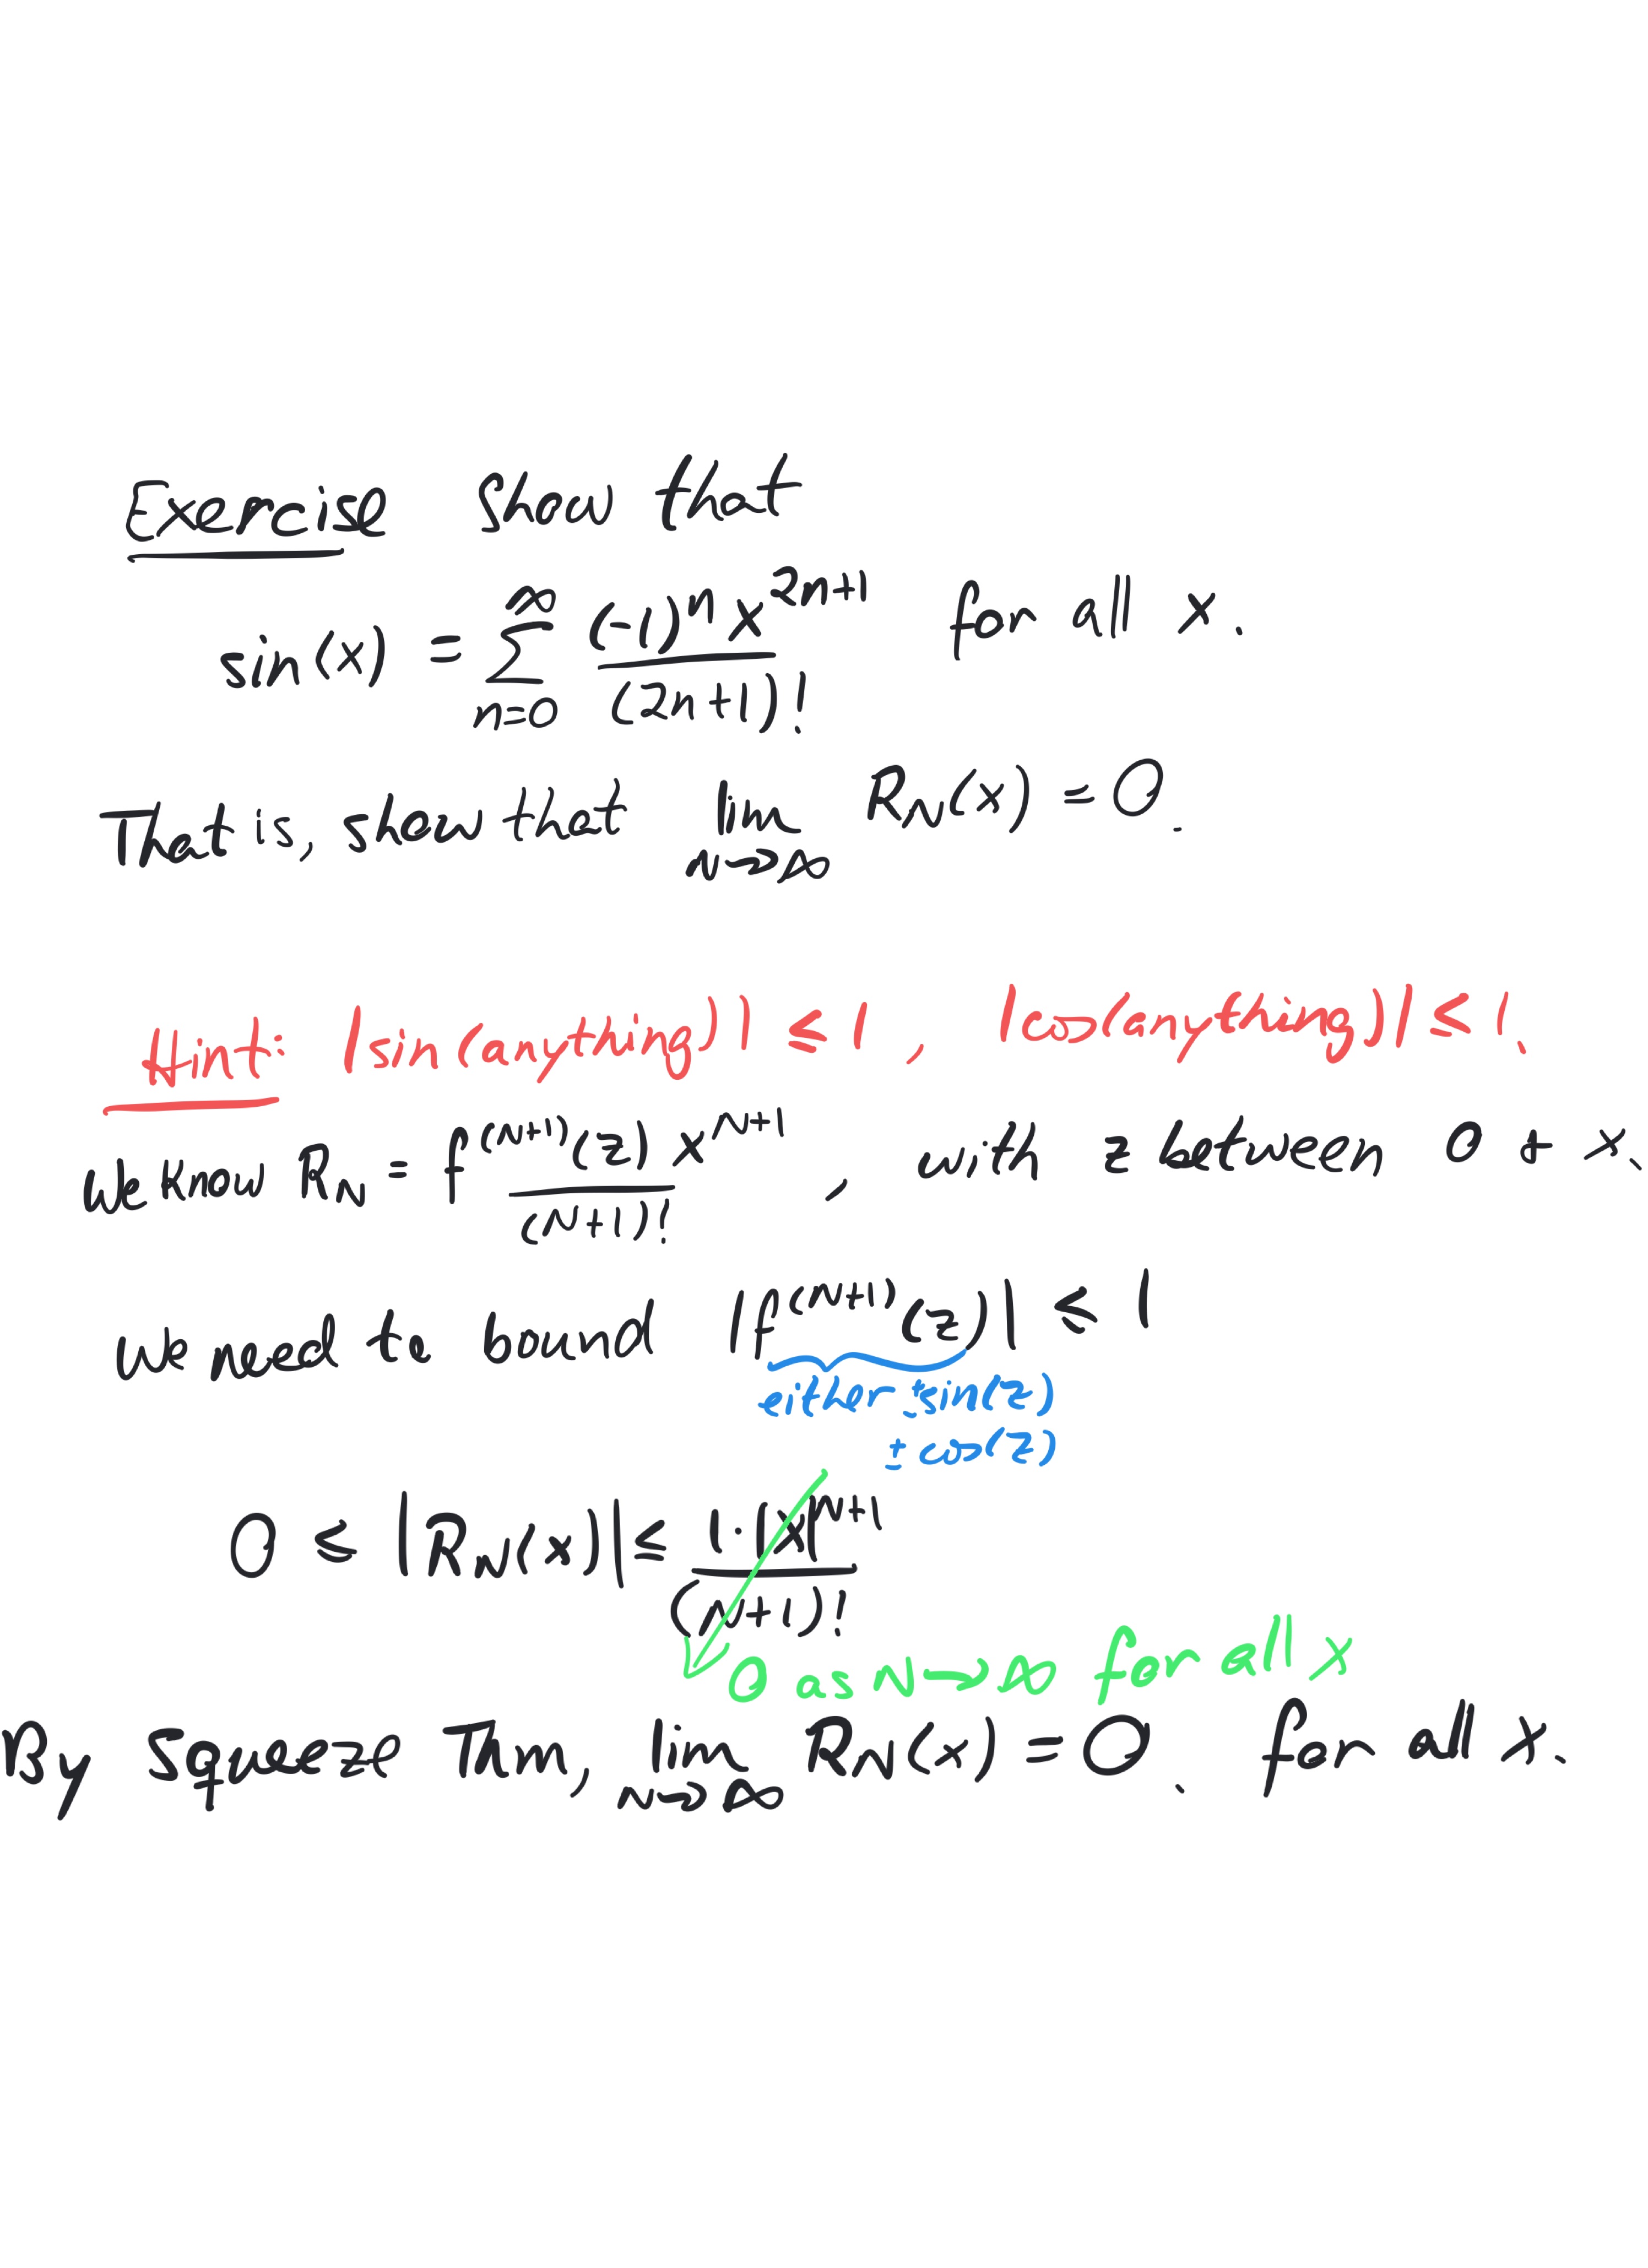 Exercise Show that
sin(x) = ∑_{n=0}^{∞} (-1)^n x^{2n+1} / (2n+1)! for all x.
That is, show that lim_{N→∞} R_N(x) = 0.
Hint: |sin(anything)| ≤ 1, |cos(anything)| ≤ 1.
We know R_N = f^{(N+1)}(z) x^{N+1} / (N+1)!, with z between 0 + x.
We need to bound |f^{(N+1)}(z)| ≤ 1
either ± sin(z)
± cos(z)
0 ≤ |R_N(x)| ≤ 1·|x|^{N+1} / (N+1)!
0 as N→∞ for all x
By Squeeze Thm, lim_{N→∞} R_N(x) = 0. for all x.